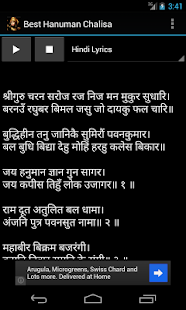 3:41
Best Hanuman Chalisa
Hindi Lyrics
श्रीगुरु चरन सरोज रज निज मन मुकुर सुधारि।
बरनउँ रघुबर बिमल जसु जो दायकु फल चारि।
बुद्धिहीन तनु जानिकै सुमिरौं पवनकुमार।
बल बुधि बिद्या देहु मोहि हरहु कलेश विकार।
जय हनुमान ज्ञान गुन सागर।
जय कपीस तिहुँ लोक उजागर॥ १ ॥
राम दूत अतुलित बल धामा।
अंजनि पुत्र पवनसुत नामा॥ २ ॥
महाबीर बिक्रम बजरंगी।
Arugula, Microgreens, Swiss Chard and
Lots more. Delivered at Home